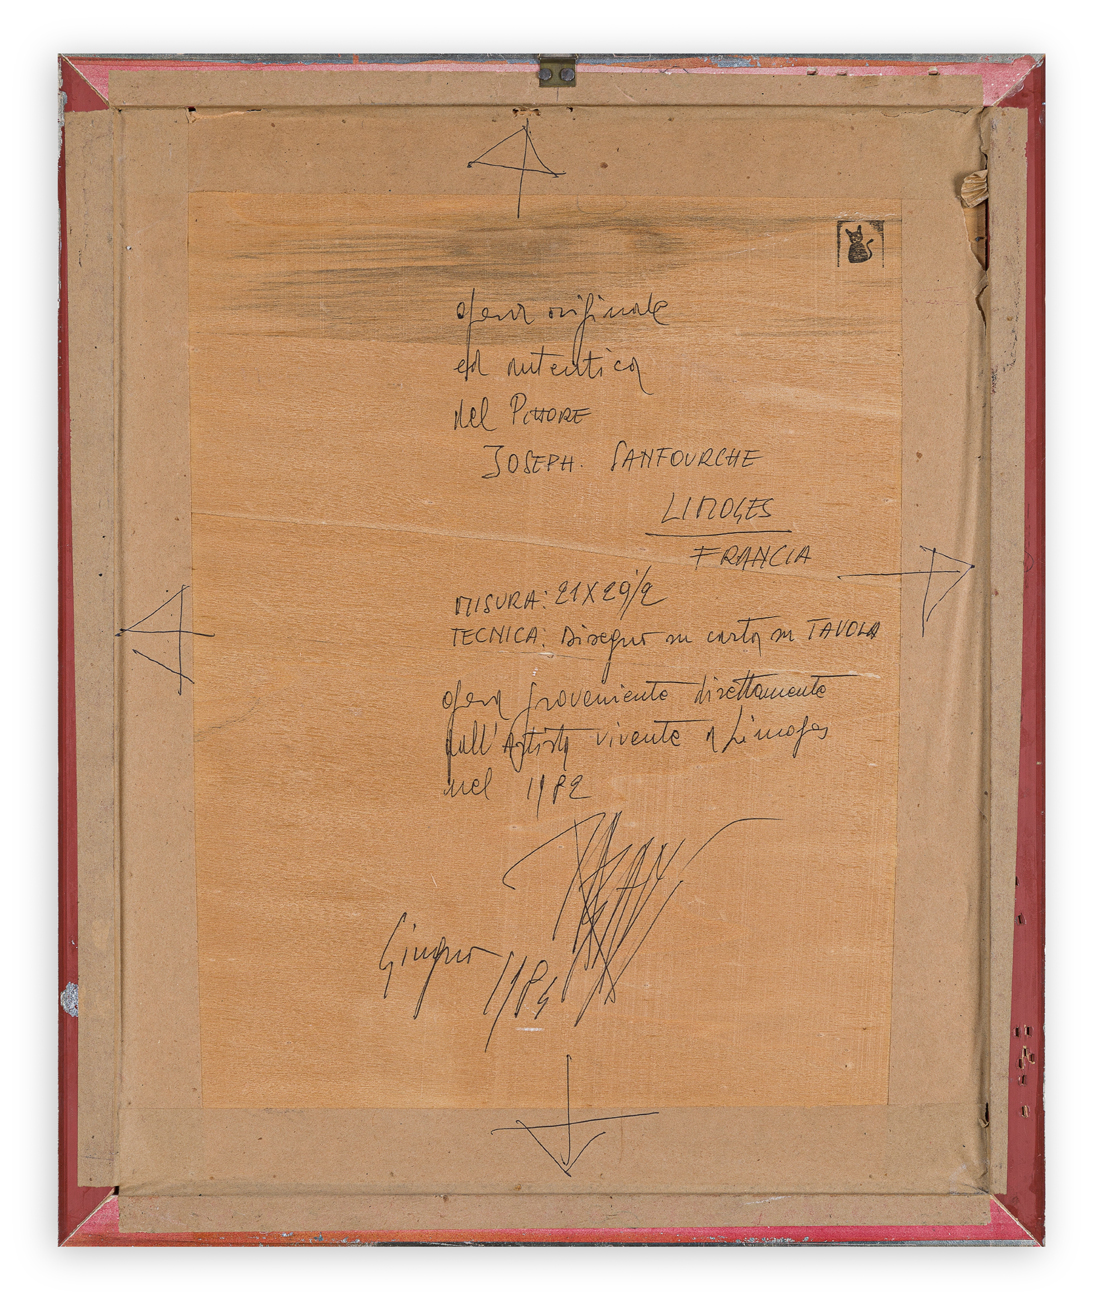 opera originale
ed autentica
del PITTORE
JOSEPH. SANFOURCHE
LIMOGES
FRANCIA
MISURA: 21X29/2
TECNICA: Disegno su carta su TAVOLA
opera proveniente direttamente
dall'Artista vivente a Limoges
nel 1982
Giugno 1984